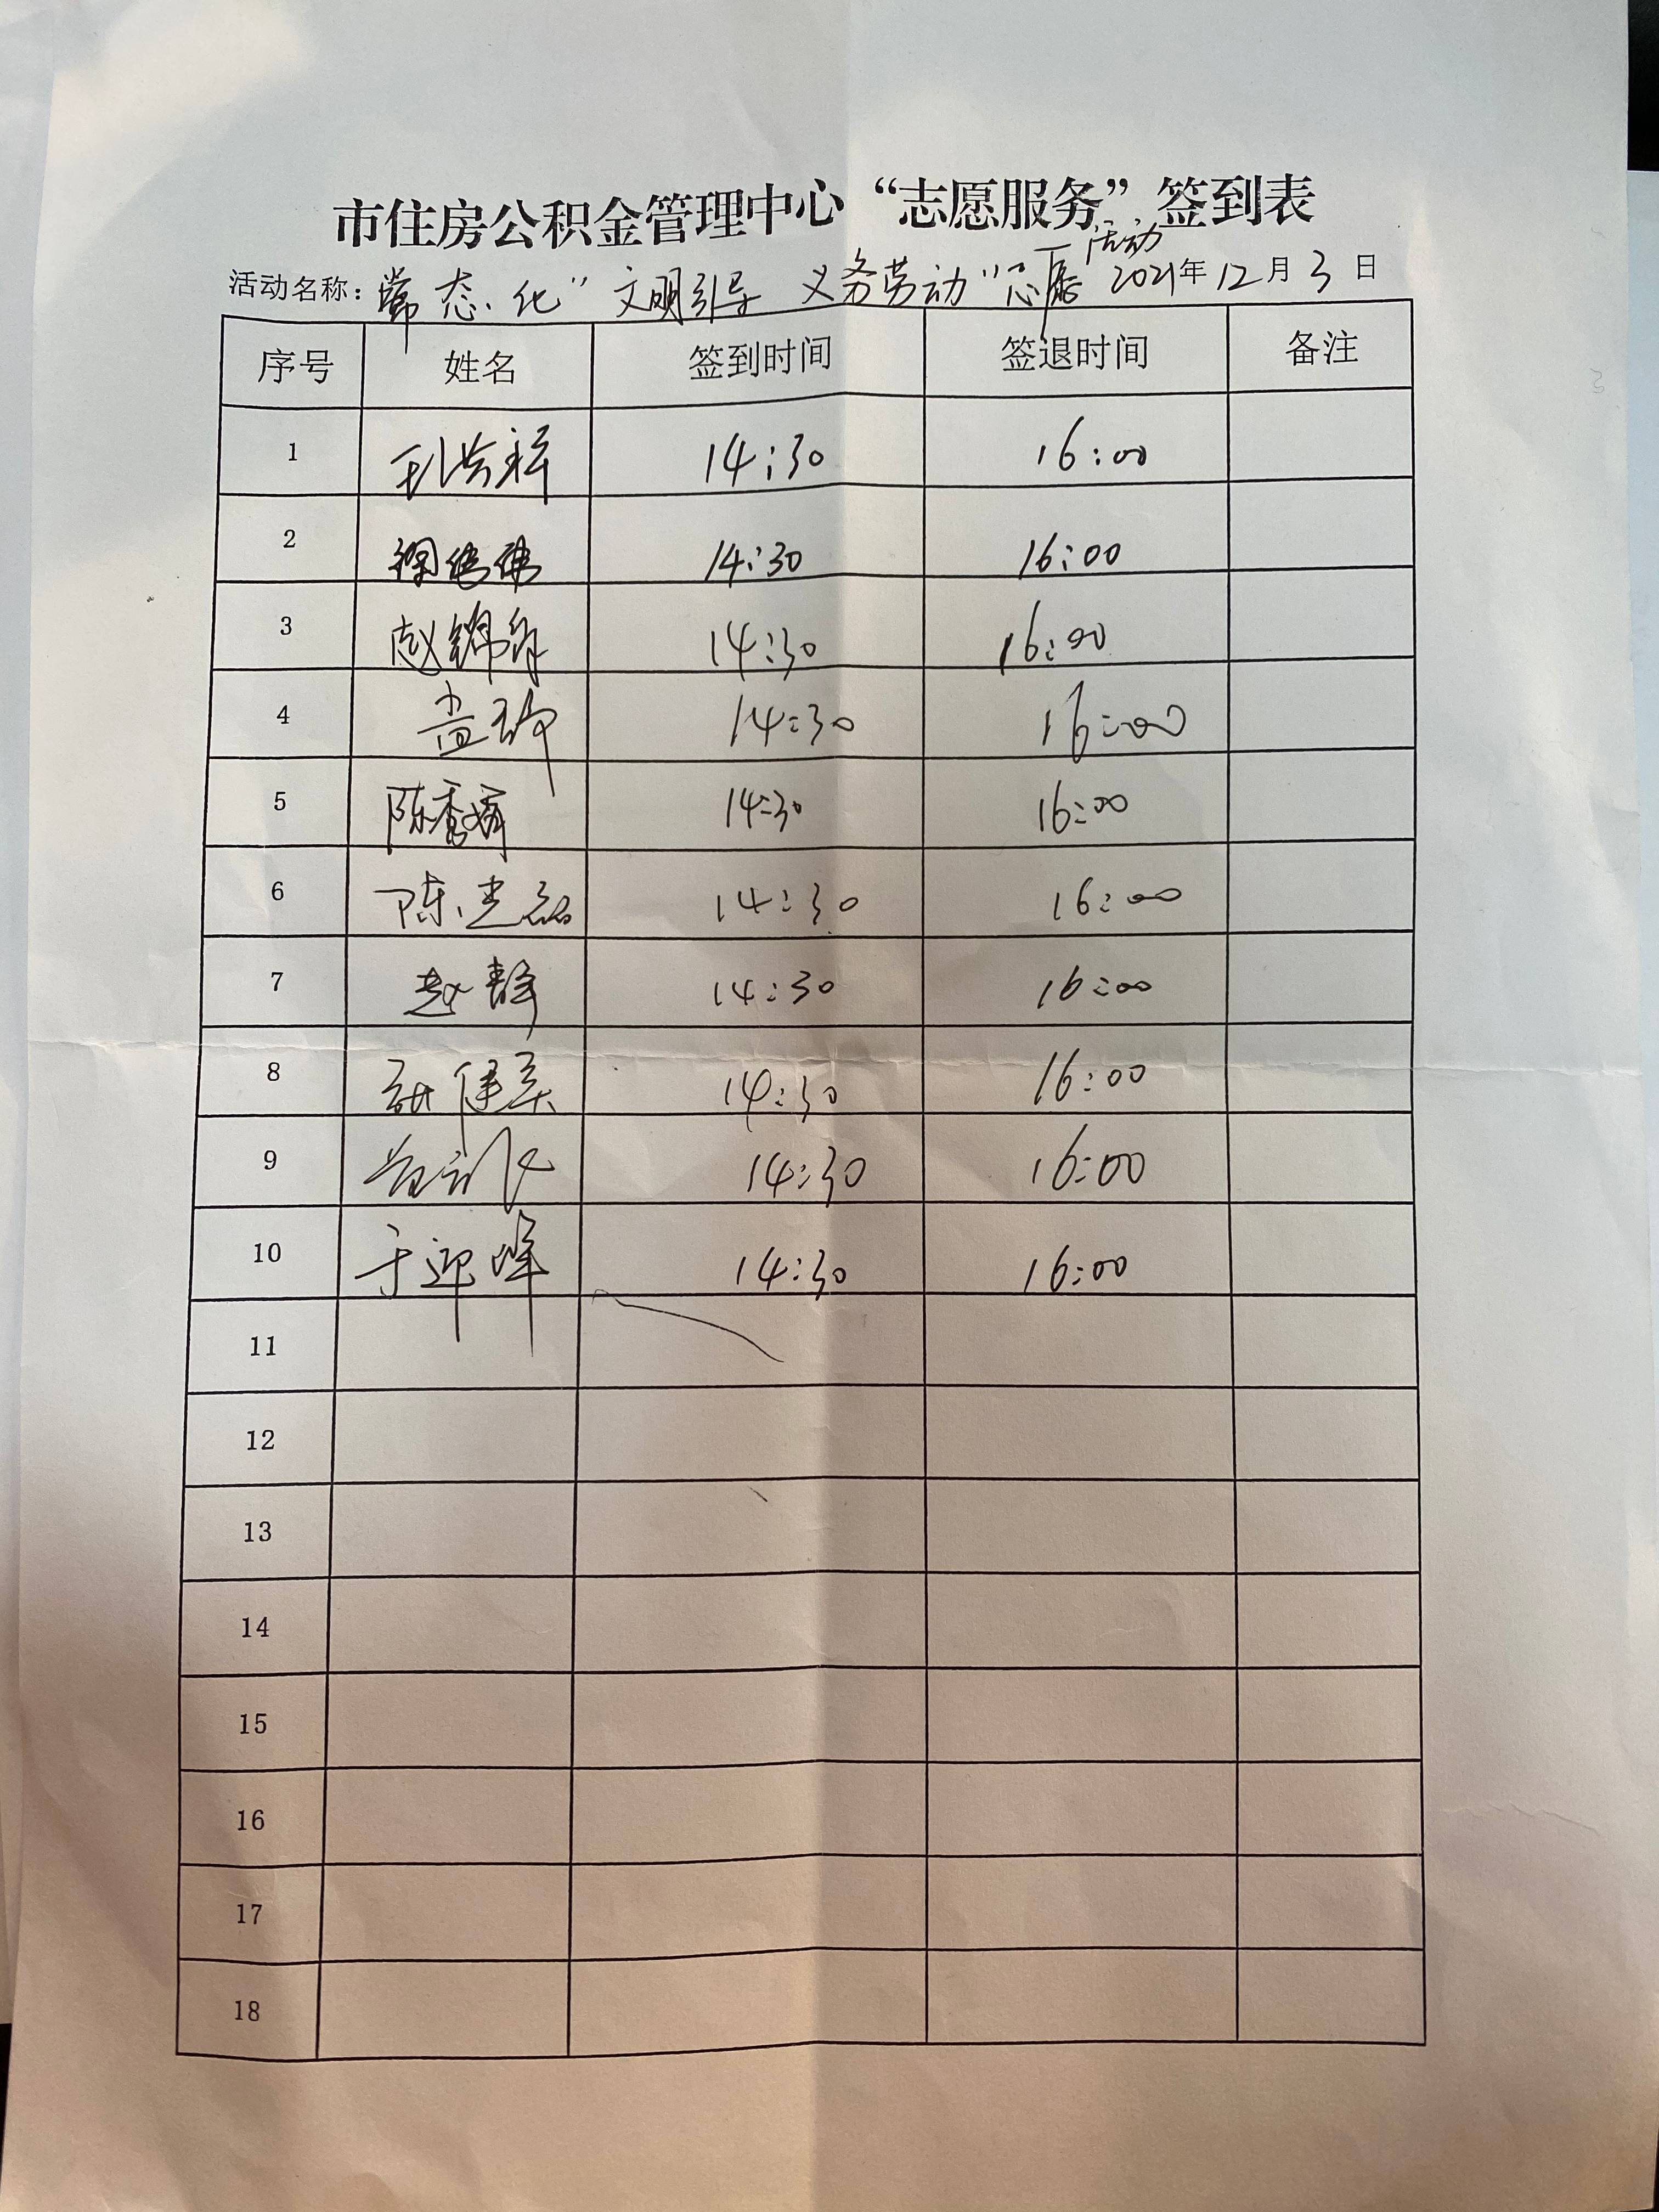 市住房公积金管理中心“志愿服务”签到表
活动名称：常态化“文明引导 义务劳动”志愿活动 2021年12月3日
序号 姓名 签到时间 签退时间 备注
1 14:30 16:00
2 14:30 16:00
3 赵锦 14:30 16:00
4 14:30 16:00
5 陈秀 14:30 16:00
6 陈 14:30 16:00
7 赵静 14:30 16:00
8 14:30 16:00
9 14:30 16:00
10 于迎峰 14:30 16:00
11
12
13
14
15
16
17
18